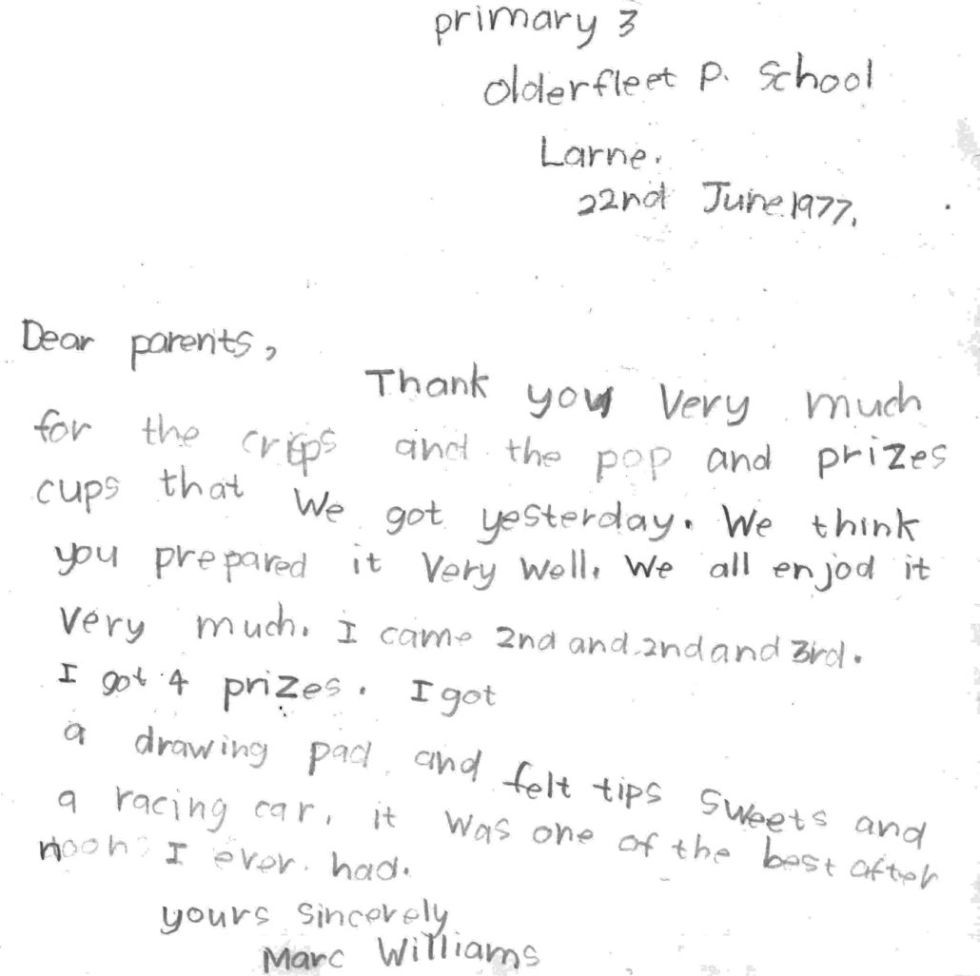 primary 3
olderfleet P. School
Larne.
22nd June 1977.
Dear parents,
Thank you Very much
for the crips and the pop and prizes
cups that We got yesterday. We think
you prepared it Very Well. We all enjod it
Very much. I came 2nd and 2nd and 3rd.
I got 4 prizes. I got
a drawing pad and felt tips Sweets and
a racing car, it was one of the best after
noon I ever had.
yours Sincerely
Marc Williams